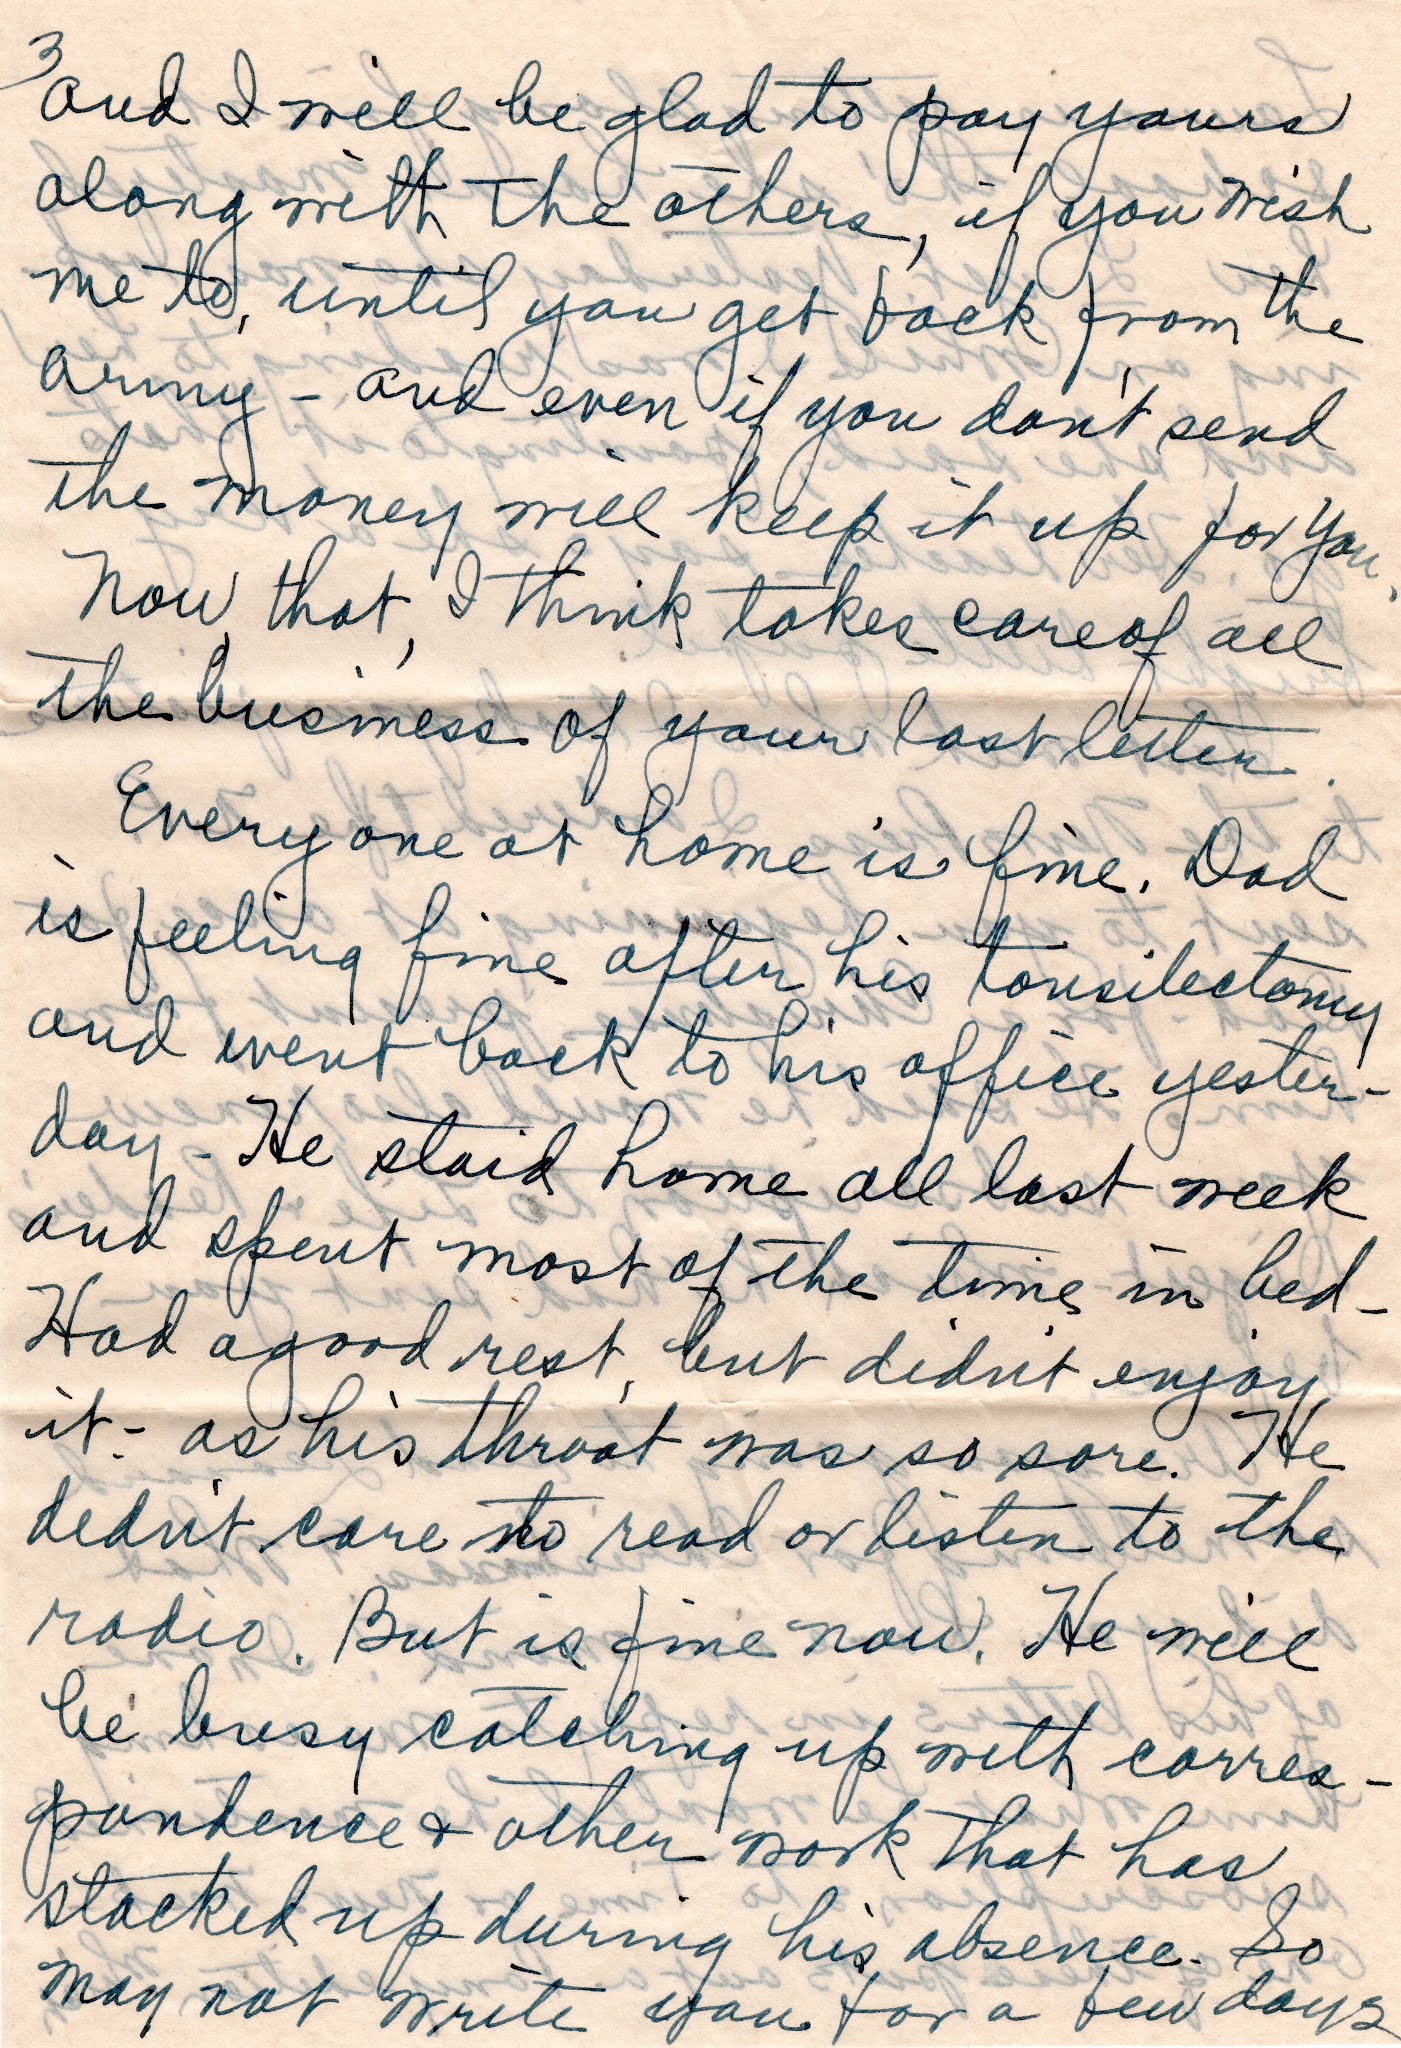 3
and I will be glad to pay yours
along with the others, if you wish
me to, until you get back from the
army - and even if you don't send
the money will keep it up for you.
Now, that, I think takes care of all
the business of your last letter.
Everyone at home is fine. Dad
is feeling fine after his tonsilectomy
and went back to his office yester-
day - He staid home all last week
and spent most of the time in bed -
Had a good rest, but didn't enjoy
it - as his throat was so sore. He
didn't care to read or listen to the
radio. But is fine now. He will
be busy catching up with corres-
pondence & other work that has
stacked up during his absence. So
may not write you for a few days